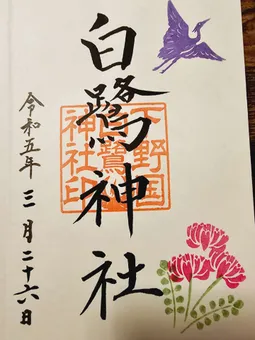 白鷺神社
下野国
白鷺
神社印
令和五年 三月二十六日